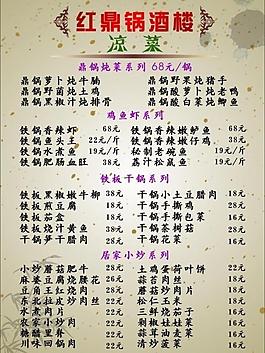 红鼎锅酒楼
凉菜
鼎锅炖菜系列68元/锅
鼎锅萝卜炖牛腩 鼎锅野果炖猪手
鼎锅野菌炖土鸡 鼎锅酸萝卜炖老鸭
鼎锅黑椒汁炖排骨 鼎锅酸白菜炖鲫鱼
鸡鱼虾系列
铁锅香辣虾 68元 铁锅香辣嫩鲈鱼 68元
铁锅鱼头王 22元/斤 铁锅香辣嫩仔鸡 38元
铁锅水煮鱼 19元/斤 秘制老碗鱼 19元/斤
铁锅肥肠血旺 38元 荔汁松鼠鱼 19元/斤
铁板干锅系列
铁板黑椒嫩牛柳 38元 干锅小土豆腊肉 18元
铁板煎豆腐 18元 干锅手撕鸡 28元
铁板茄盒 18元 干锅手撕包菜 16元
铁板烧汁黄鱼 38元 干锅茶树菇 28元
干锅笋干腊肉 28元 干锅花菜 16元
居家小炒系列
小炒蘑菇肥牛 28元 土鸡蛋荷叶饼 22元
麻婆豆腐烧腰花 26元 蒜苔肉丝 18元
豆角王红烧肉 28元 蒜苔腊肉 18元
东北拉皮炒肉丝 22元 松仁玉米 18元
水煮肉片 22元 三鲜烧茄子 16元
农家小炒肉 18元 剁椒娃娃菜 16元
小炒猪肝 18元 蒜茸油麦菜 16元
川味回锅肉 22元 清炒菠菜 16元